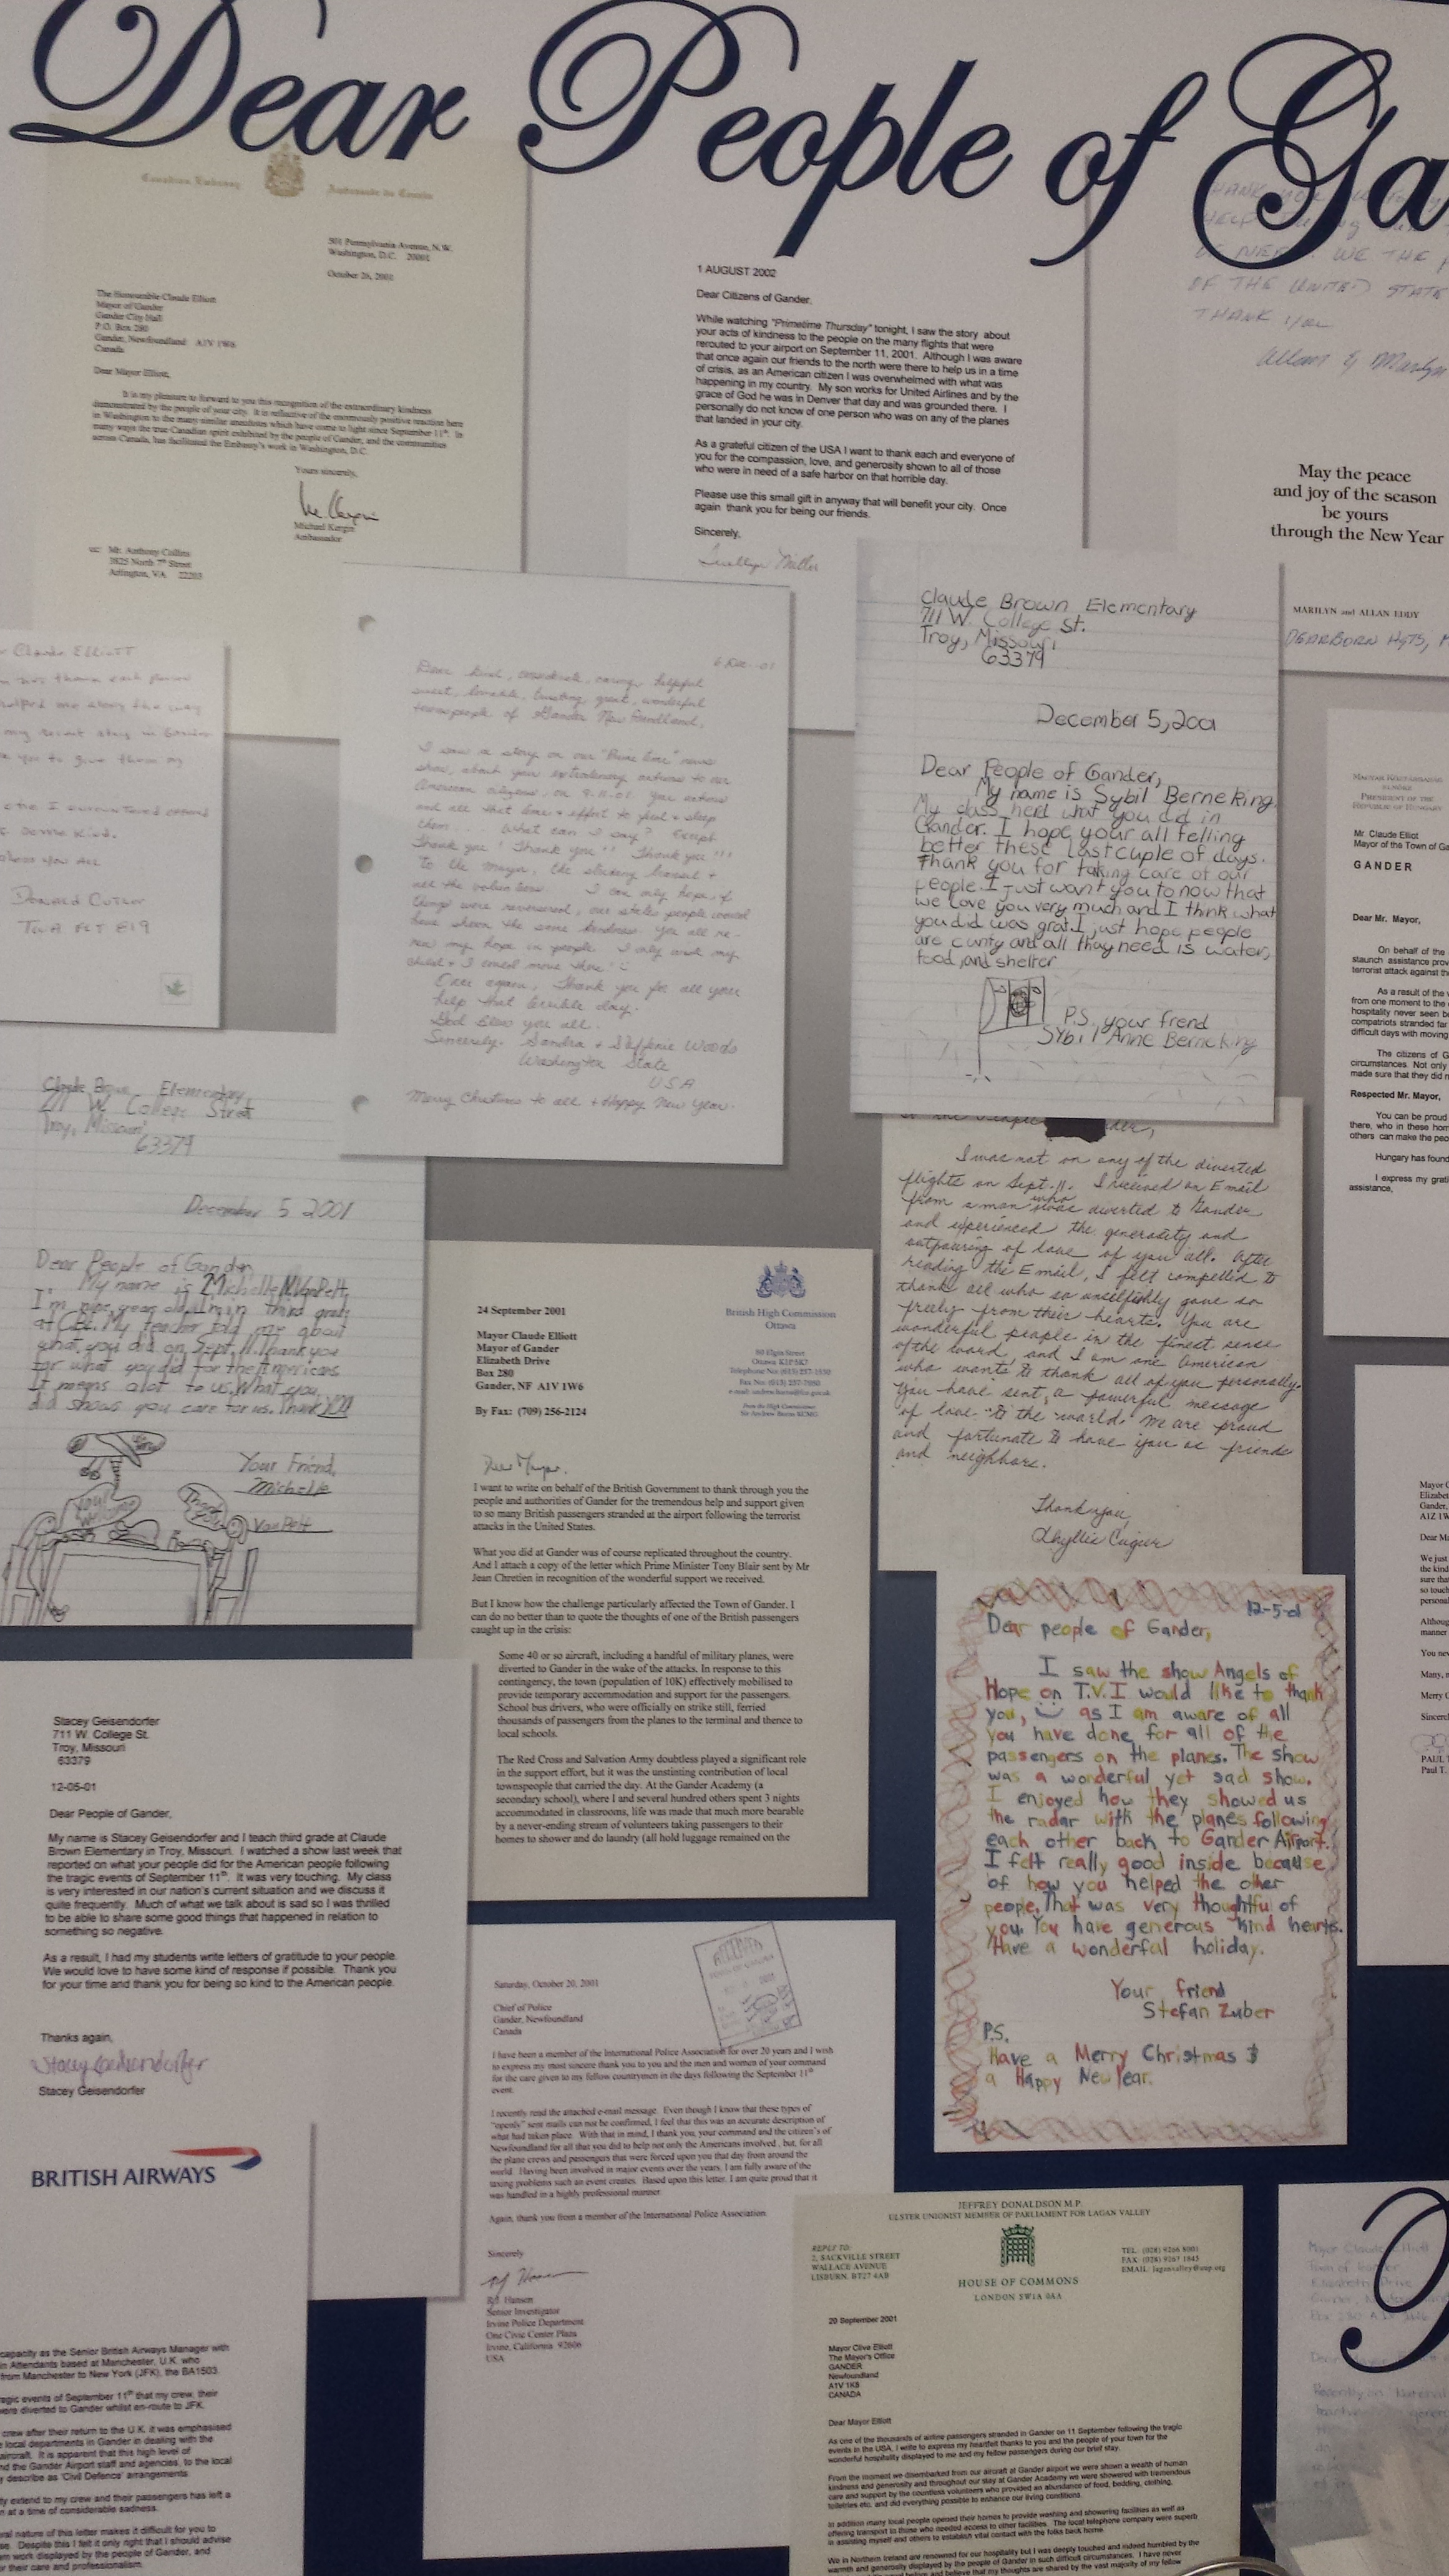 Dear People of Ga
Canadian Embassy
Ambassade du Canada
501 Pennsylvania Avenue, N.W.
Washington, D.C. 20001
October 26, 2001
The Honourable Claude Elliott
Mayor of Gander
Gander City Hall
P.O. Box 280
Gander, Newfoundland A1V 1W6
Canada
Dear Mayor Elliott,
It is my pleasure to forward to you this recognition of the extraordinary kindness
demonstrated by the people of your city. It is reflective of the enormously positive reaction here
in Washington to the many similar anecdotes which have come to light since September 11th. In
many ways the true Canadian spirit exhibited by the people of Gander, and the communities
across Canada, has facilitated the Embassy's work in Washington, D.C.
Yours sincerely,
Michael Kergin
Ambassador
cc: Mr. Anthony Collins
3825 North 7th Street
Arlington, VA 22203
1 AUGUST 2002
Dear Citizens of Gander,
While watching "Primetime Thursday" tonight, I saw the story about
your acts of kindness to the people on the many flights that were
rerouted to your airport on September 11, 2001. Although I was aware
that once again our friends to the north were there to help us in a time
of crisis, as an American citizen I was overwhelmed with what was
happening in my country. My son works for United Airlines and by the
grace of God he was in Denver that day and was grounded there. I
personally do not know of one person who was on any of the planes
that landed in your city.
As a grateful citizen of the USA I want to thank each and everyone of
you for the compassion, love, and generosity shown to all of those
who were in need of a safe harbor on that horrible day.
Please use this small gift in anyway that will benefit your city. Once
again thank you for being our friends.
Sincerely,
Miller
HELP
OF NEED. WE THE
OF THE UNITED STATE
THANK YOU
Allan & Marilyn
May the peace
and joy of the season
be yours
through the New Year
MARILYN and ALLAN EDDY
DEARBORN HGTS, M
Claude ELLIOTT
thank each person
helped me along the way
my recent stay in Gander
you to give them my
I encountered offered
bless you ALL
DONALD CUTLER
TWA FLT 819
6 Dec -01
Dear kind, considerate, caring, helpful
sweet, loveable, trusting, great, wonderful
townspeople of Gander New Foundland,
I saw a story on our "Prime time" news
show, about your extraordinary actions to our
American citizens, on 9-11-01. Your actions
and all that time & effort to feed & sleep
them .... What can I say? Except
Thank you! Thank you!! Thank you!!!
To the mayor, the
all the volunteers. I can only hope, if
things were reversered, our states people would
have shown the same kindness. You all re-
new my hope in people. I only wish my
child & I could move there!
Once again, Thank you for all your
help that terrible day.
God Bless you all.
Sincerely. Sandra & Steffenie Woods
Washington State
USA
Merry Christmas to all & Happy New Year.
Claude Brown Elementary
711 W. College St.
Troy, Missouri
63379
December 5, 2001
Dear People of Gander,
My name is Sybil Berneking.
My class herd what you did in
Gander. I hope your all felling
better these last cuple of days.
Thank you for taking care of our
people. I just want you to now that
we love you very much and I think what
you did was grat. I just hope people
are and all thay need is water,
food, and shelter
P.S. your frend
Sybil Anne Berneking
PRESIDENT OF THE
REPUBLIC OF HUNGARY
Mr. Claude Elliot
Mayor of the Town of Ga
GANDER
Dear Mr. Mayor,
On behalf of the
staunch assistance prov
terrorist attack against th
As a result of the
from one moment to the
hospitality never seen b
compatriots stranded far
difficult days with moving
The citizens of G
circumstances. Not only
made sure that they did n
Respected Mr. Mayor,
You can be proud
there, who in these hom
others can make the peo
Hungary has found
I express my grati
assistance,
Claude Brown Elementary
711 W College Street
Troy, Missouri
63379
December 5 2001
Dear People of Gander,
My name is Michelle M. VanPelt,
I'm nine years old. I'm in third grade
at CBE. My teacher told me about
what you did on Sept, 11. Thank you
for what you did for the Americans
It means a lot to us. What you
did shows you care for us. Thank you
Your Friend,
Michelle
VanPelt
I was not on any of the diverted
flights on Sept. 11. I received an Email
from a man who was diverted to Gander
and experienced the generosity and
outpouring of love of you all. After
reading the Email, I felt compelled to
thank all who so unselfishly gave so
freely from their hearts. You are
wonderful people in the finest sense
of the word, and I am one American
who wants to thank all of you personally.
You have sent a powerful message
of love to the world. We are proud
and fortunate to have you as friends
and neighbors.
Thank you,
Phyllis
24 September 2001
British High Commission
Ottawa
Mayor Claude Elliott
Mayor of Gander
Elizabeth Drive
Box 280
Gander, NF A1V 1W6
80 Elgin Street
Ottawa K1P 5K7
By Fax: (709) 256-2124
From the High Commissioner
Sir Andrew Burns KCMG
Dear Mayor,
I want to write on behalf of the British Government to thank through you the
people and authorities of Gander for the tremendous help and support given
to so many British passengers stranded at the airport following the terrorist
attacks in the United States.
What you did at Gander was of course replicated throughout the country.
And I attach a copy of the letter which Prime Minister Tony Blair sent by Mr
Jean Chretien in recognition of the wonderful support we received.
But I know how the challenge particularly affected the Town of Gander. I
can do no better than to quote the thoughts of one of the British passengers
caught up in the crisis:
Some 40 or so aircraft, including a handful of military planes, were
diverted to Gander in the wake of the attacks. In response to this
contingency, the town (population of 10K) effectively mobilised to
provide temporary accommodation and support for the passengers.
School bus drivers, who were officially on strike still, ferried
thousands of passengers from the planes to the terminal and thence to
local schools.
The Red Cross and Salvation Army doubtless played a significant role
in the support effort, but it was the unstinting contribution of local
townspeople that carried the day. At the Gander Academy (a
secondary school), where I and several hundred others spent 3 nights
accommodated in classrooms, life was made that much more bearable
by a never-ending stream of volunteers taking passengers to their
homes to shower and do laundry (all hold luggage remained on the
Mayor C
Elizabet
Gander,
A1Z 1W
Dear Ma
We just
the kind
sure that
so touch
personal
Althoug
manner
You nev
Many, m
Merry C
Sincerel
PAUL T
Paul T.
12-5-01
Dear people of Gander,
I saw the show Angels of
Hope on T.V. I would like to thank
you, as I am aware of all
you have done for all of the
passengers on the planes. The show
was a wonderful yet sad show.
I enjoyed how they showed us
the radar with the planes following
each other back to Gander Airport.
I felt really good inside because
of how you helped the other
people. That was very thoughtful of
you. You have generous kind hearts.
Have a wonderful holiday.
Your friend
Stefan Zuber
P.S.
Have a Merry Christmas &
a Happy New Year.
Stacey Geisendorfer
711 W. College St.
Troy, Missouri
63379
12-05-01
Dear People of Gander,
My name is Stacey Geisendorfer and I teach third grade at Claude
Brown Elementary in Troy, Missouri. I watched a show last week that
reported on what your people did for the American people following
the tragic events of September 11th. It was very touching. My class
is very interested in our nation's current situation and we discuss it
quite frequently. Much of what we talk about is sad so I was thrilled
to be able to share some good things that happened in relation to
something so negative.
As a result, I had my students write letters of gratitude to your people.
We would love to have some kind of response if possible. Thank you
for your time and thank you for being so kind to the American people.
Thanks again,
Stacey Geisendorfer
Stacey Geisendorfer
Saturday, October 20, 2001
Chief of Police
Gander, Newfoundland
Canada
I have been a member of the International Police Association for over 20 years and I wish
to express my most sincere thank you to you and the men and women of your command
for the care given to my fellow countrymen in the days following the September 11th
event.
I recently read the attached e-mail message. Even though I know that these types of
"openly" sent mails can not be confirmed, I feel that this was an accurate description of
what had taken place. With that in mind, I thank you, your command and the citizen's of
Newfoundland for all that you did to help not only the Americans involved, but, for all
the plane crews and passengers that were forced upon you that day from around the
world. Having been involved in major events over the years, I am fully aware of the
taxing problems such an event creates. Based upon this letter, I am quite proud that it
was handled in a highly professional manner.
Again, thank you from a member of the International Police Association
Sincerely
R.J. Hansen
Senior Investigator
Irvine Police Department
One Civic Center Plaza
Irvine, California 92606
USA
BRITISH AIRWAYS
capacity as the Senior British Airways Manager with
in Attendants based at Manchester, U.K. who
from Manchester to New York (JFK), the BA1503.
ragic events of September 11th that my crew, their
were diverted to Gander whilst en-route to JFK.
crew after their return to the U.K. it was emphasised
local departments in Gander in dealing with the
aircraft. It is apparent that this high level of
nd the Gander Airport staff and agencies, to the local
y describe as 'Civil Defence' arrangements.
ty extend to my crew and their passengers has left a
n at a time of considerable sadness.
ral nature of this letter makes it difficult for you to
se. Despite this I felt it only right that I should advise
m work displayed by the people of Gander, and
r their care and professionalism.
JEFFREY DONALDSON M.P.
ULSTER UNIONIST MEMBER OF PARLIAMENT FOR LAGAN VALLEY
REPLY TO:
2, SACKVILLE STREET
WALLACE AVENUE
LISBURN. BT27 4AB
TEL: (028) 9266 8001
FAX: (028) 9267 1845
EMAIL: laganvalley@uup.org
HOUSE OF COMMONS
LONDON SW1A 0AA
20 September 2001
Mayor Clive Elliott
The Mayor's Office
GANDER
Newfoundland
A1V 1K8
CANADA
Dear Mayor Elliott
As one of the thousands of airline passengers stranded in Gander on 11 September following the tragic
events in the USA, I write to express my heartfelt thanks to you and the people of your town for the
wonderful hospitality displayed to me and my fellow passengers during our brief stay.
From the moment we disembarked from our aircraft at Gander airport we were shown a wealth of human
kindness and generosity and throughout our stay at Gander Academy we were showered with tremendous
care and support by the countless volunteers who provided an abundance of food, bedding, clothing,
toiletries etc. and did everything possible to enhance our living conditions.
In addition many local people opened their homes to provide washing and showering facilities as well as
offering transport to those who needed access to other facilities. The local telephone company were superb
in assisting myself and others to establish vital contact with the folks back home.
We in Northern Ireland are renowned for our hospitality but I was deeply touched and indeed humbled by the
warmth and generosity displayed by the people of Gander in such difficult circumstances. I have never
believe that my thoughts are shared by the vast majority of my fellow